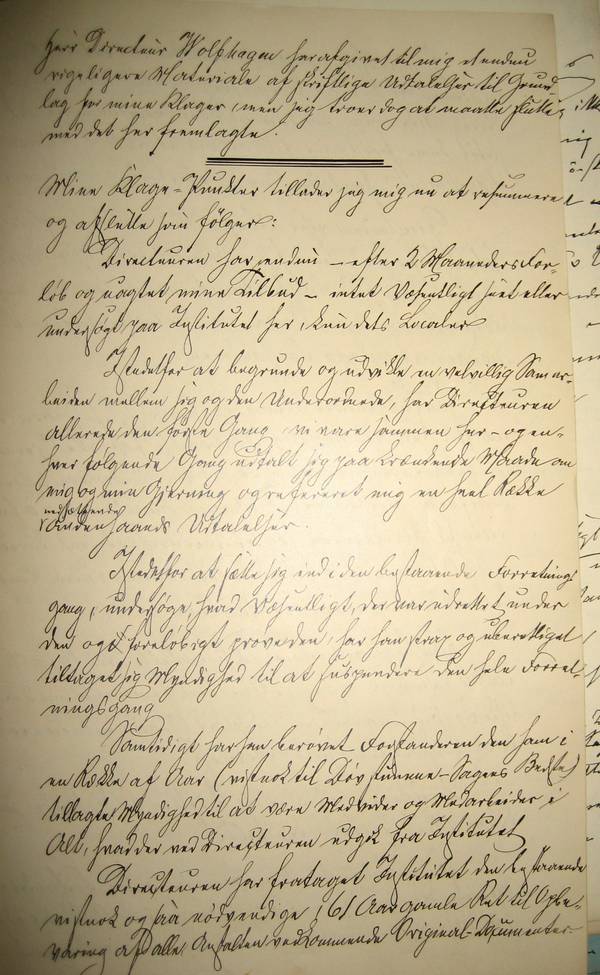 Herr Directeur Wolfhagen har afgivet til mig et endnu
rigeligere Materiale af skriftlige Udtalelser til Grund
lag for mine Klager, men jeg troer dog at maatte slutte
med det her fremlagte.
Mine Klage-Punkter tillader jeg mig nu at resumere
og afslutte som følger:
Directeuren har endnu – efter 2 Maaneders For-
løb og uagtet mine Tilbud – intet Væsentligt seet eller
undersøgt paa Institutet her, kun dets Localer
Istedetfor at begrunde og udvikle en velvillig Samar-
beiden mellem sig og den Underordnede, har Directeuren
allerede den første Gang, vi vare sammen her – og en-
hver følgende Gang udtalt sig paa krænkende Maade om
mig og min Gjerning og refereret mig en heel Række
nedsættende
andenhaands Udtalelser.
Istedetfor at sætte sig ind i den bestaaende Forretnings
gang, undersøge, hvad Væsentligt, der var udrettet under
den og foreløbigt prøve den, har han strax og uberettiget
tiltaget sig Myndighed til at suspendere den hele Forret-
ningsgang
Samtidigt har han berøvet Forstanderen den ham i
en Række af Aar (vistnok til Døvstumme-Sagens Bedste)
tillagte Myndighed til at være Medvider og Medarbeider i
Alt, hvad der ved Directeuren udgik fra Institutet
Directeuren har frataget Institutet den bestaaende
vistnok ogsaa nødvendige, 61 Aar gamle Ret til Opbe-
varing af alle Anstalten vedkommende Original-Documenter